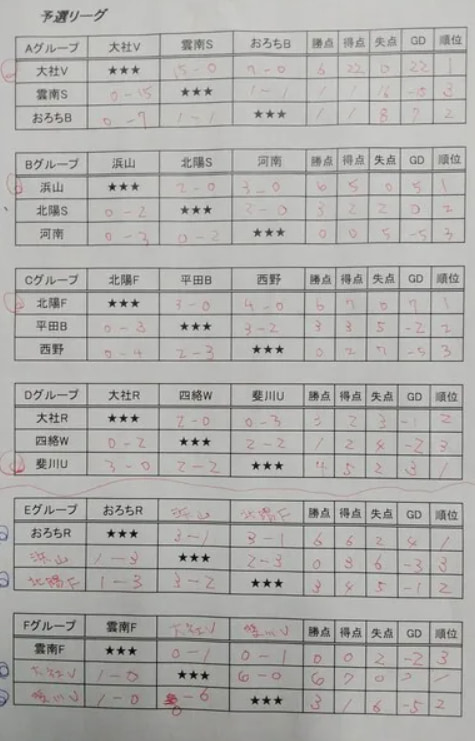 予選リーグ
Aグループ 大社V 雲南S おろちB 勝点 得点 失点 GD 順位
大社V ★★★ 15-0 7-0 6 22 0 22 1
雲南S 0-15 ★★★ 1-1 1 1 16 -15 3
おろちB 0-7 1-1 ★★★ 1 1 8 7 2
Bグループ 浜山 北陽S 河南 勝点 得点 失点 GD 順位
浜山 ★★★ 2-0 3-0 6 5 0 5 1
北陽S 0-2 ★★★ 2-0 3 2 2 0 2
河南 0-3 0-2 ★★★ 0 0 5 -5 3
Cグループ 北陽F 平田B 西野 勝点 得点 失点 GD 順位
北陽F ★★★ 3-0 4-0 6 7 0 7 1
平田B 0-3 ★★★ 3-2 3 3 5 -2 2
西野 0-4 2-3 ★★★ 0 2 7 -5 3
Dグループ 大社R 四絡W 斐川U 勝点 得点 失点 GD 順位
大社R ★★★ 2-0 0-3 3 2 3 -1 2
四絡W 0-2 ★★★ 2-2 1 2 4 -2 3
斐川U 3-0 2-2 ★★★ 4 5 2 3 1
Eグループ おろちR 浜山 北陽F 勝点 得点 失点 GD 順位
おろちR ★★★ 3-1 3-1 6 6 2 4 1
浜山 1-3 ★★★ 2-3 0 3 6 -3 3
北陽F 1-3 3-2 ★★★ 3 4 5 -1 2
Fグループ 雲南F 大社V 斐川U 勝点 得点 失点 GD 順位
雲南F ★★★ 0-1 0-1 0 0 2 -2 3
大社V 1-0 ★★★ 6-0 6 7 0 7 1
斐川U 1-0 0-6 ★★★ 3 1 6 -5 2